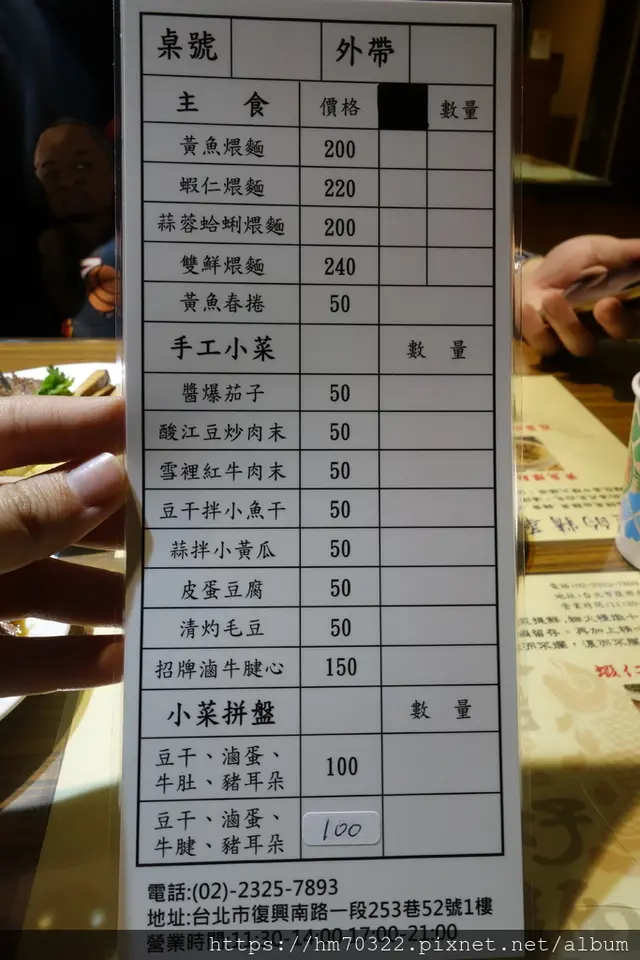 桌號 外帶
主 食 價格 數量
黃魚煨麵 200
蝦仁煨麵 220
蒜蓉蛤蜊煨麵 200
雙鮮煨麵 240
黃魚春捲 50
手工小菜 數 量
醬爆茄子 50
酸江豆炒肉末 50
雪裡紅牛肉末 50
豆干拌小魚干 50
蒜拌小黃瓜 50
皮蛋豆腐 50
清灼毛豆 50
招牌滷牛腱心 150
小菜拼盤 數 量
豆干、滷蛋、
牛肚、豬耳朵 100
豆干、滷蛋、
牛腱、豬耳朵 100
電話:(02)-2325-7893
地址:台北市復興南路一段253巷52號1樓
營業時間:11:30-14:00 17:00-21:00
https://hm70322.pixnet.net/album